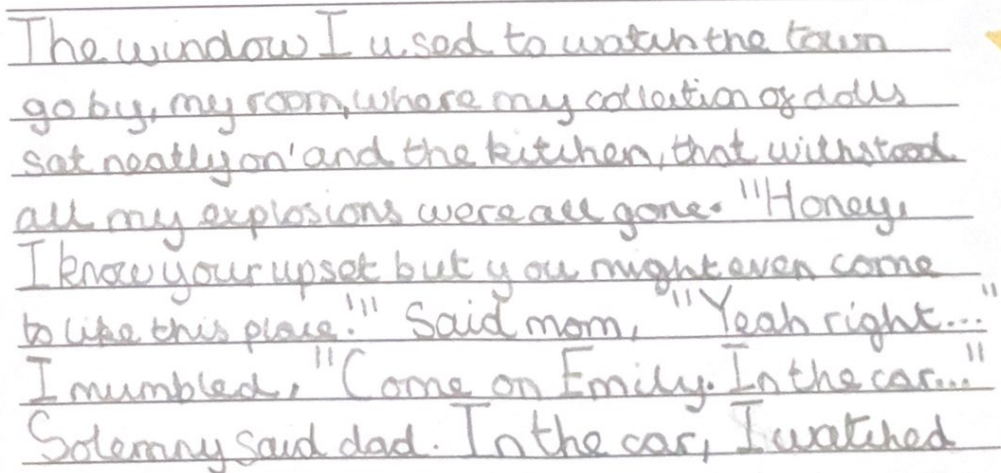 The window I used to watch the town
go by, my room, where my collection of dolls
sat neatly on' and the kitchen, that withstood
all my explosions were all gone. "Honey,
I know your upset but you might even come
to like this place!" Said mom, "Yeah right..."
I mumbled, "Come on Emily. In the car..."
Solemny said dad. In the car, I watched